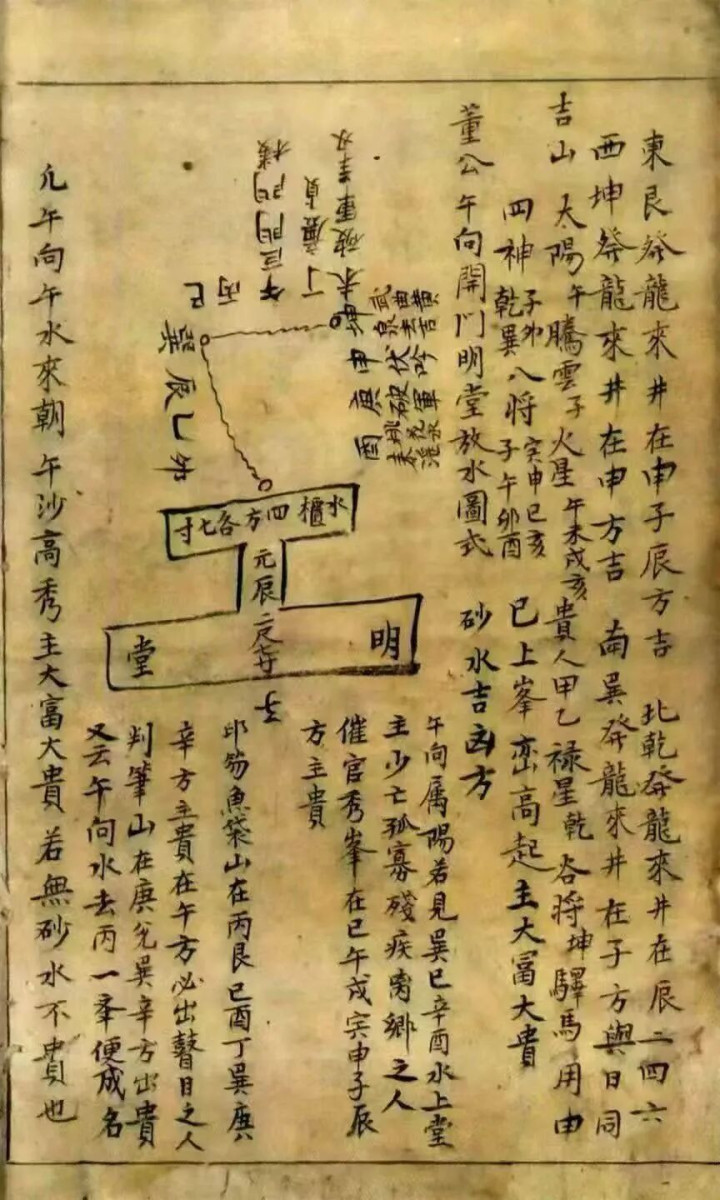 東艮發龍來井在申子辰方吉　北乾發龍來井在辰二四六
西坤發龍來井在申方吉　南巽發龍來井在子方與日同
吉山　太陽午騰雲子火星午未戌亥貴人甲乙祿星乾谷將坤驛馬用申
四神乾巽子卯八將寅申巳亥子午卯酉　已上峯巒高起主大冨大貴
董公午向開門明堂放水圖式　砂水吉凶方
午向属陽若見巽巳辛酉水上堂
主少亡孤寡殘疾离鄉之人
催官秀峯在巳午戌寅申子辰
方主貴
未破軍
丁廉貞
午巨門
丙
巳
巽辰乙卯
坤
申伏吟
庚破軍
酉
水櫃四方各七寸
元辰
明堂
子
印笏魚袋山在丙艮巳酉丁巽庚
辛方主貴在午方必出瞽目之人
判筆山在庚兌巽辛方出貴
又云午向水去丙一峯便成名
凡午向午水來朝　午沙高秀主大富大貴若無砂水不貴也